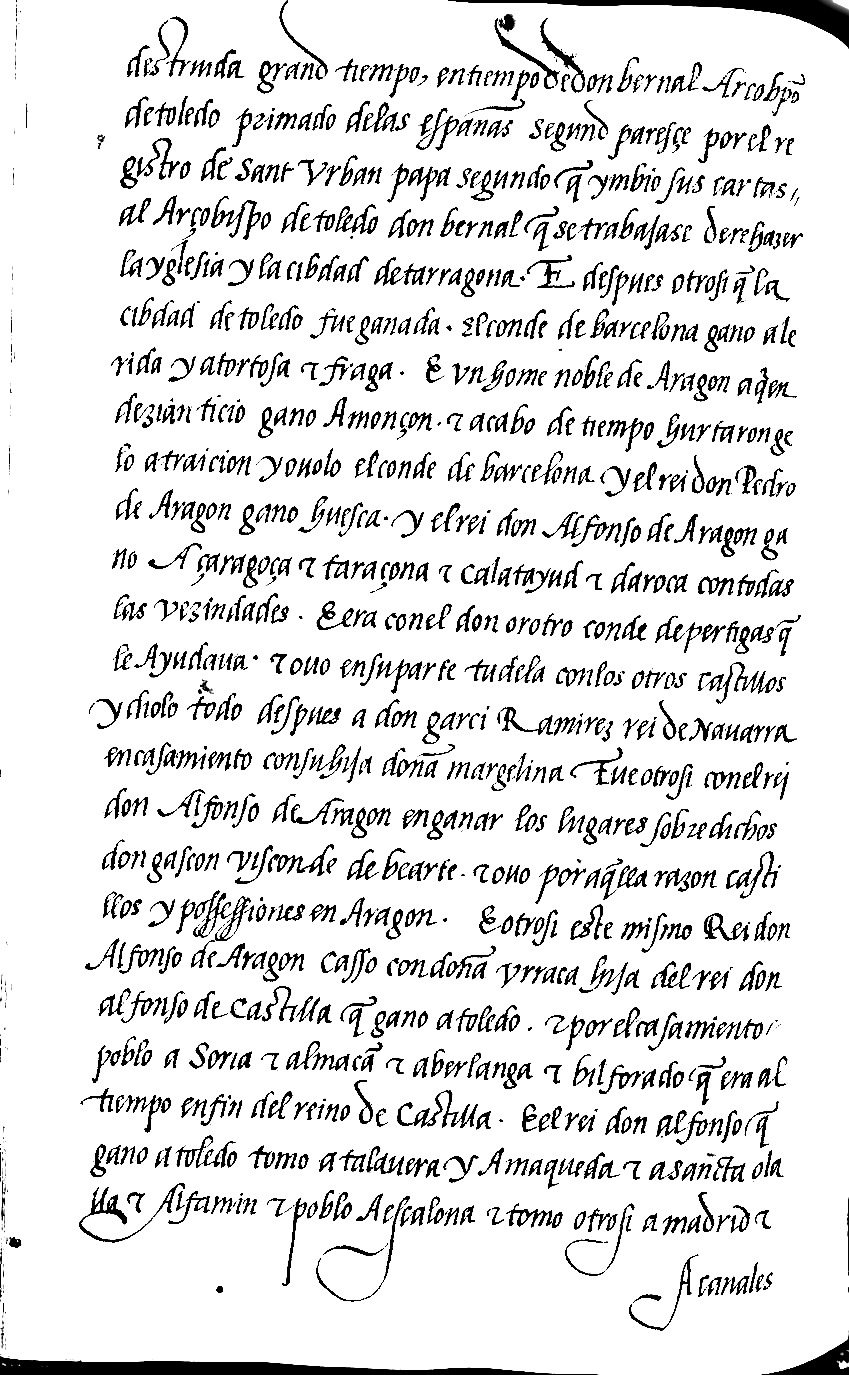 destruida grand tiempo, en tiempo de don bernal Arcobp̃o
de toledo primado delas españas segund paresçe por el re
gistro de Sant Vrban papa segundo q̃ ymbio sus cartas
al Arçobispo de toledo don bernal q̃ se trabajase de rehazer
la yglesia y la cibdad de tarragona. E despues otrosi q̃ la
cibdad de toledo fue ganada. El conde de barcelona gano a le
rida y a tortosa & fraga. E vn home noble de Aragon a q̃en
dezian ticio gano A monçon. & acabo de tiempo hurtaronge
lo a traicion y ouolo el conde de barcelona y el rei don Pedro
de Aragon gano huesca. y el rei don Alfonso de Aragon ga
no A çaragoça & taraçona & calatayud & daroca con todas
las vezindades. E era con el don orotro conde de pertigas q̃
le Ayudaua. & ouo en su parte tudela con los otros castillos
y diolo todo despues a don garci Ramirez rei de Nauarra
en casamiento con su hija doña margelina Fue otrosi con el rei
don Alfonso de Aragon en ganar los lugares sobre dichos
don gascon visconde de bearte. & ouo por aq̃lla razon casti
llos y possessiones en Aragon. E otrosi este mismo Rei don
Alfonso de Aragon casso con doña vrraca hija del rei don
alfonso de Castilla q̃ gano a toledo. & por el casamiento
poblo a Soria & almaçã & a berlanga & bilforado q̃ era al
tiempo en fin del reino de Castilla. E el rei don alfonso q̃
gano a toledo tomo a talauera y A maqueda & a sañcta ola
lla & Alfamin & poblo A escalona & tomo otrosi a madrid &
A canales